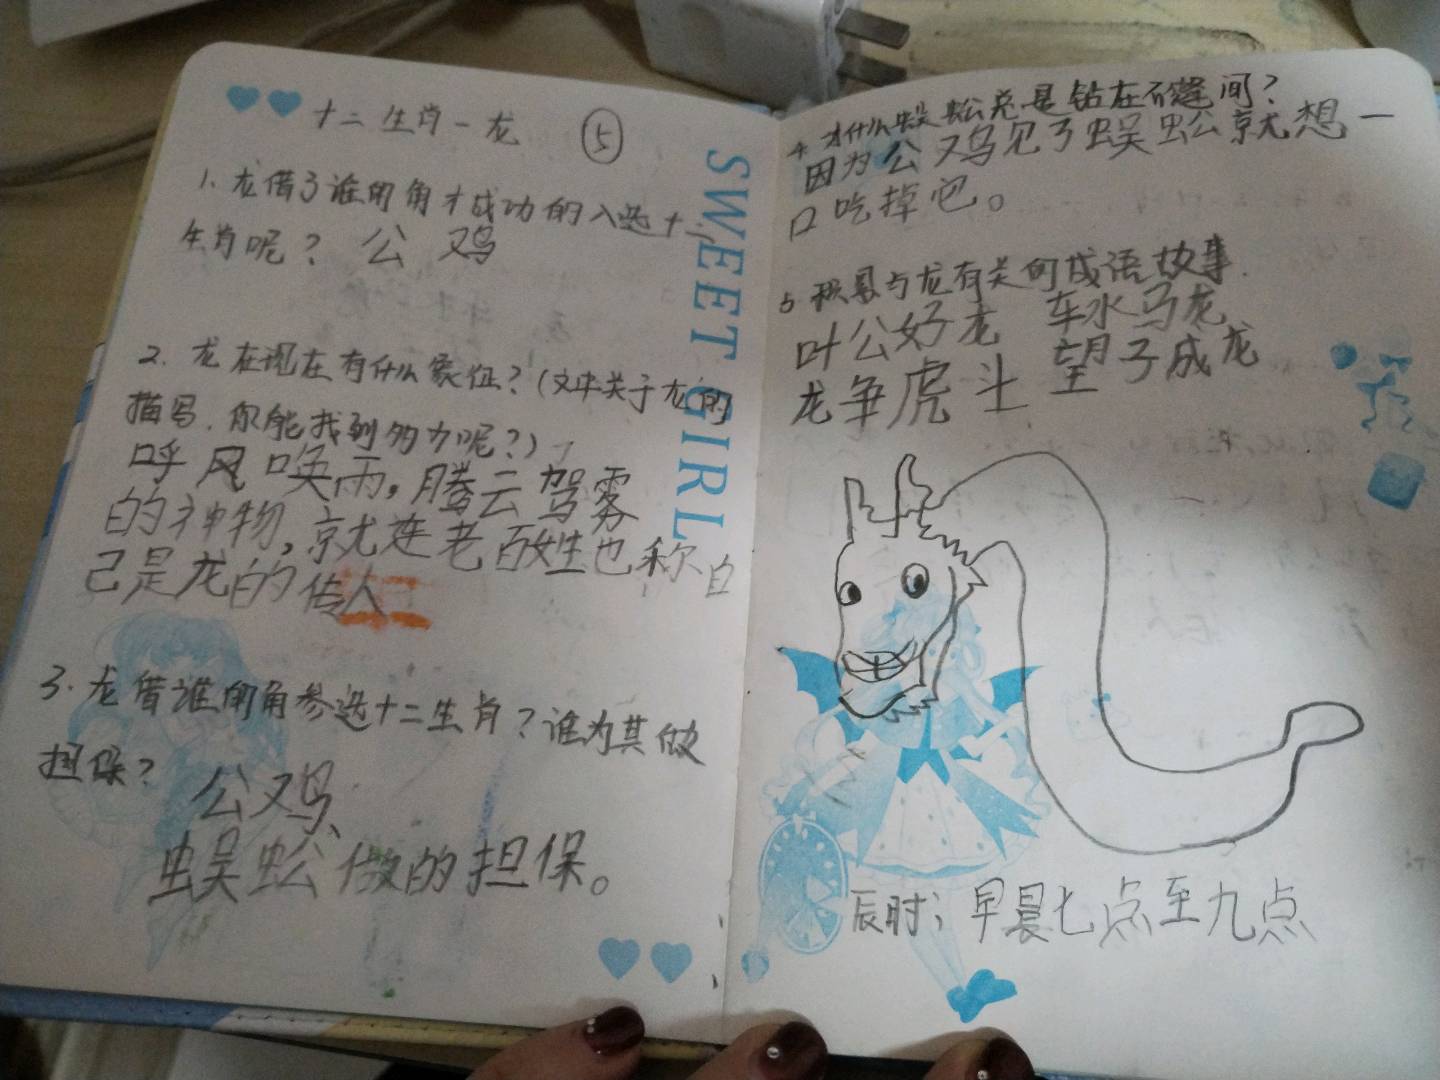 十二生肖－龙 ⑤
1. 龙借了谁的角才成功的入选十二
生肖呢？ 公鸡
2. 龙在现在有什么象征？(文中关于龙的
描写，你能找到多少呢？)
呼风唤雨，腾云驾雾
的神物，就连老百姓也称自
己是龙的传人
3. 龙借谁的角参选十二生肖？谁为其做
担保？
公鸡、
蜈蚣做的担保。
SWEET GIRL
4. 为什么蜈蚣总是钻在石缝间？
因为公鸡见了蜈蚣就想一
口吃掉它。
5. 积累与龙有关的成语故事.
叶公好龙 车水马龙
龙争虎斗 望子成龙
辰时；早晨七点至九点